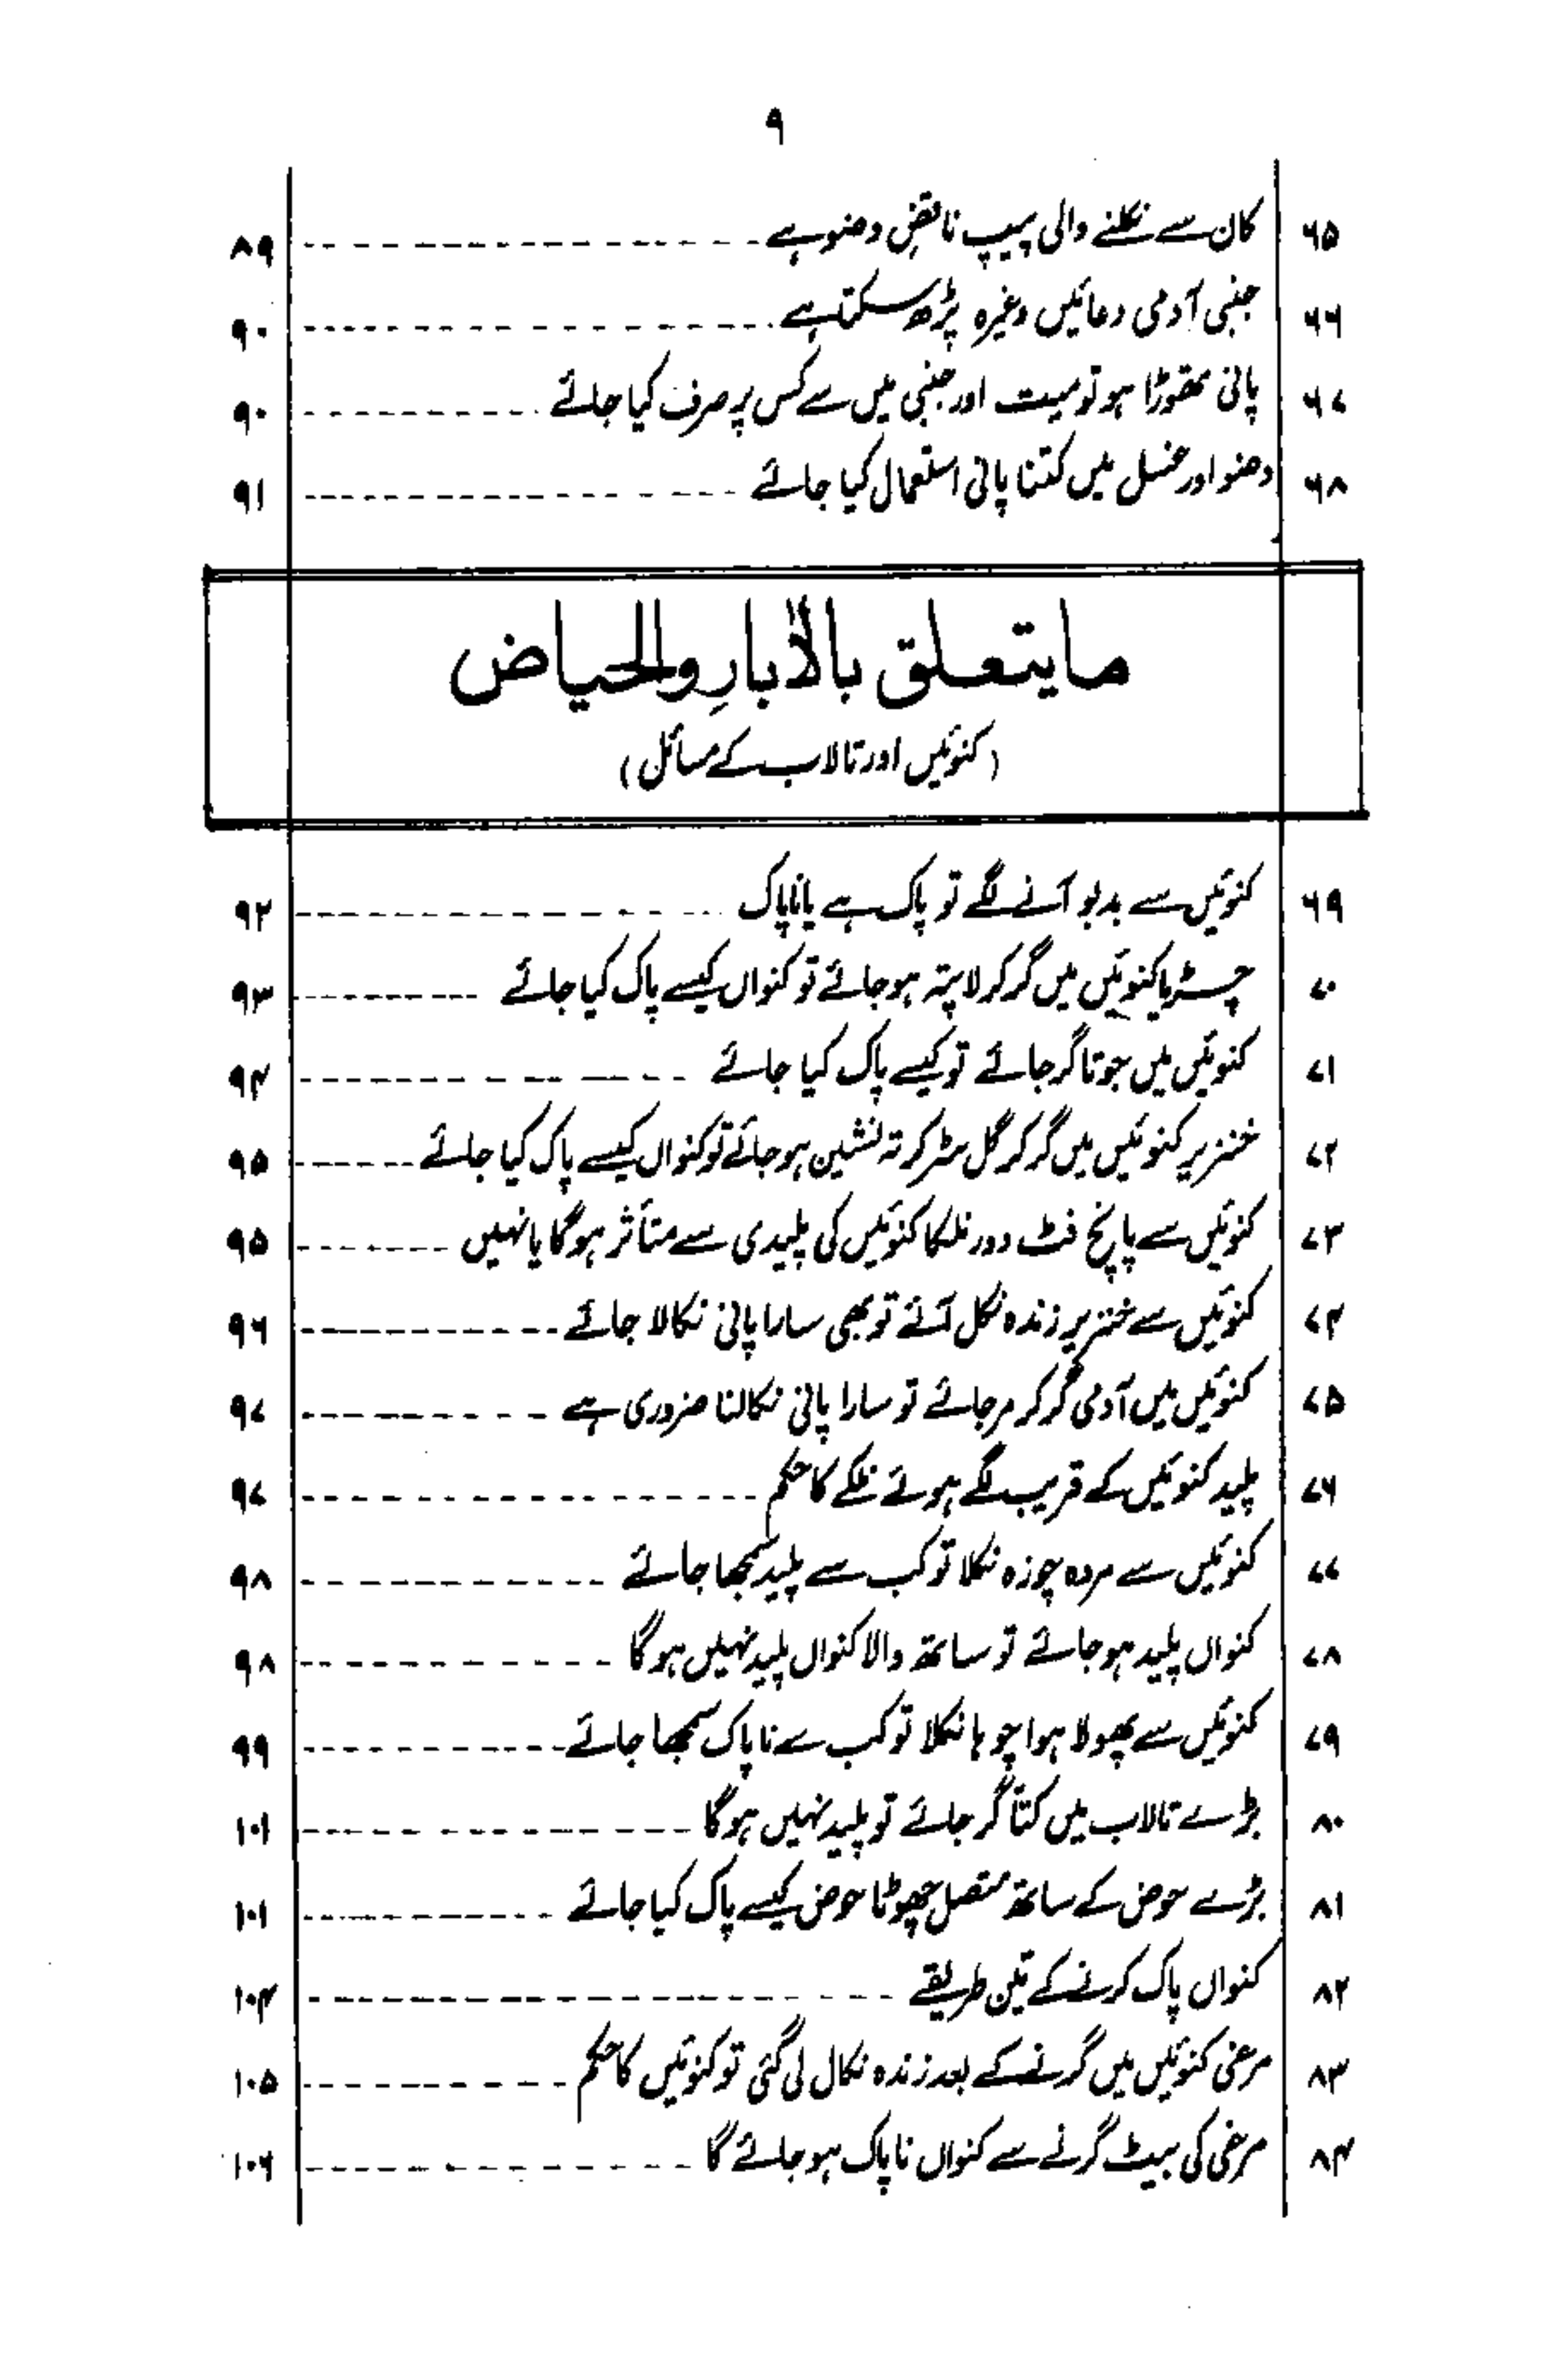 ۹
۶۵ کان سے نکلنے والی پیپ ناقضِ وضو ہے ۸۹
۶۶ جنبی آدمی دعائیں وغیرہ پڑھ سکتا ہے ۹۰
۶۷ پانی تھوڑا ہو تو میت اور جنبی میں سے کس پر صرف کیا جائے ۹۰
۶۸ وضو اور غسل میں کتنا پانی استعمال کیا جائے ۹۱
ما يتعلق بالآبارِ والحياض
(کنوئیں اور تالاب کے مسائل)
۶۹ کنوئیں سے بدبو آنے لگے تو پاک ہے یا ناپاک ۹۲
۷۰ چڑیا کنوئیں میں گر کر لاپتہ ہو جائے تو کنواں کیسے پاک کیا جائے ۹۳
۷۱ کنوئیں میں جوتا گر جائے تو کیسے پاک کیا جائے ۹۴
۷۲ خنزیر کنوئیں میں گر کر گل سڑ کر تہ نشین ہو جائے تو کنواں کیسے پاک کیا جائے ۹۵
۷۳ کنوئیں سے پانچ فٹ دور نلکا کنوئیں کی پلیدی سے متأثر ہوگا یا نہیں ۹۵
۷۴ کنوئیں سے خنزیر زندہ نکل آئے تو بھی سارا پانی نکالا جائے ۹۶
۷۵ کنوئیں میں آدمی گر کر مر جائے تو سارا پانی نکالنا ضروری ہے ۹۷
۷۶ پلید کنوئیں کے قریب لگے ہوئے نلکے کا حکم ۹۷
۷۷ کنوئیں سے مردہ چوزہ نکلا تو کب سے پلید سمجھا جائے ۹۸
۷۸ کنواں پلید ہو جائے تو ساتھ والا کنواں پلید نہیں ہوگا ۹۸
۷۹ کنوئیں سے پھولا ہوا چوہا نکلا تو کب سے ناپاک سمجھا جائے ۹۹
۸۰ بڑے تالاب میں کتّا گر جائے تو پلید نہیں ہوگا ۱۰۱
۸۱ بڑے حوض کے ساتھ متصل چھوٹا حوض کیسے پاک کیا جائے ۱۰۱
۸۲ کنواں پاک کرنے کے تین طریقے ۱۰۴
۸۳ مرغی کنوئیں میں گرنے کے بعد زندہ نکال لی گئی تو کنوئیں کا حکم ۱۰۵
۸۴ مرغی کی بیٹ گرنے سے کنواں ناپاک ہو جائے گا ۱۰۶